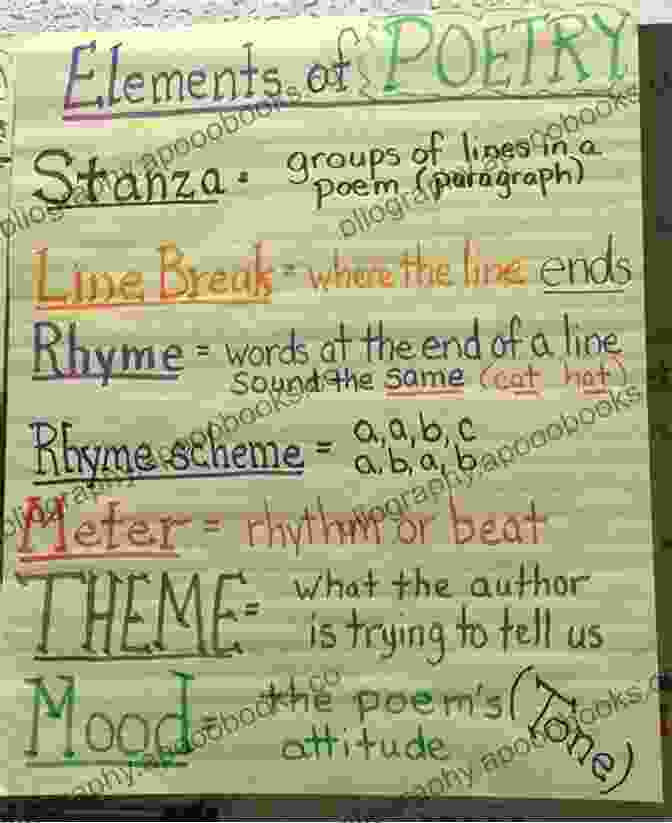 Elements of POETRY
Stanza = groups of lines in a
poem (paragraph)
Line Break = where the line ends
Rhyme = words at the end of a line
sound the same (cat hat)
Rhyme scheme = a,a,b,c
a,b,a,b
Meter = rhythm or beat
THEME = what the author
is trying to tell us
Mood = the poem's (Tone)
attitude